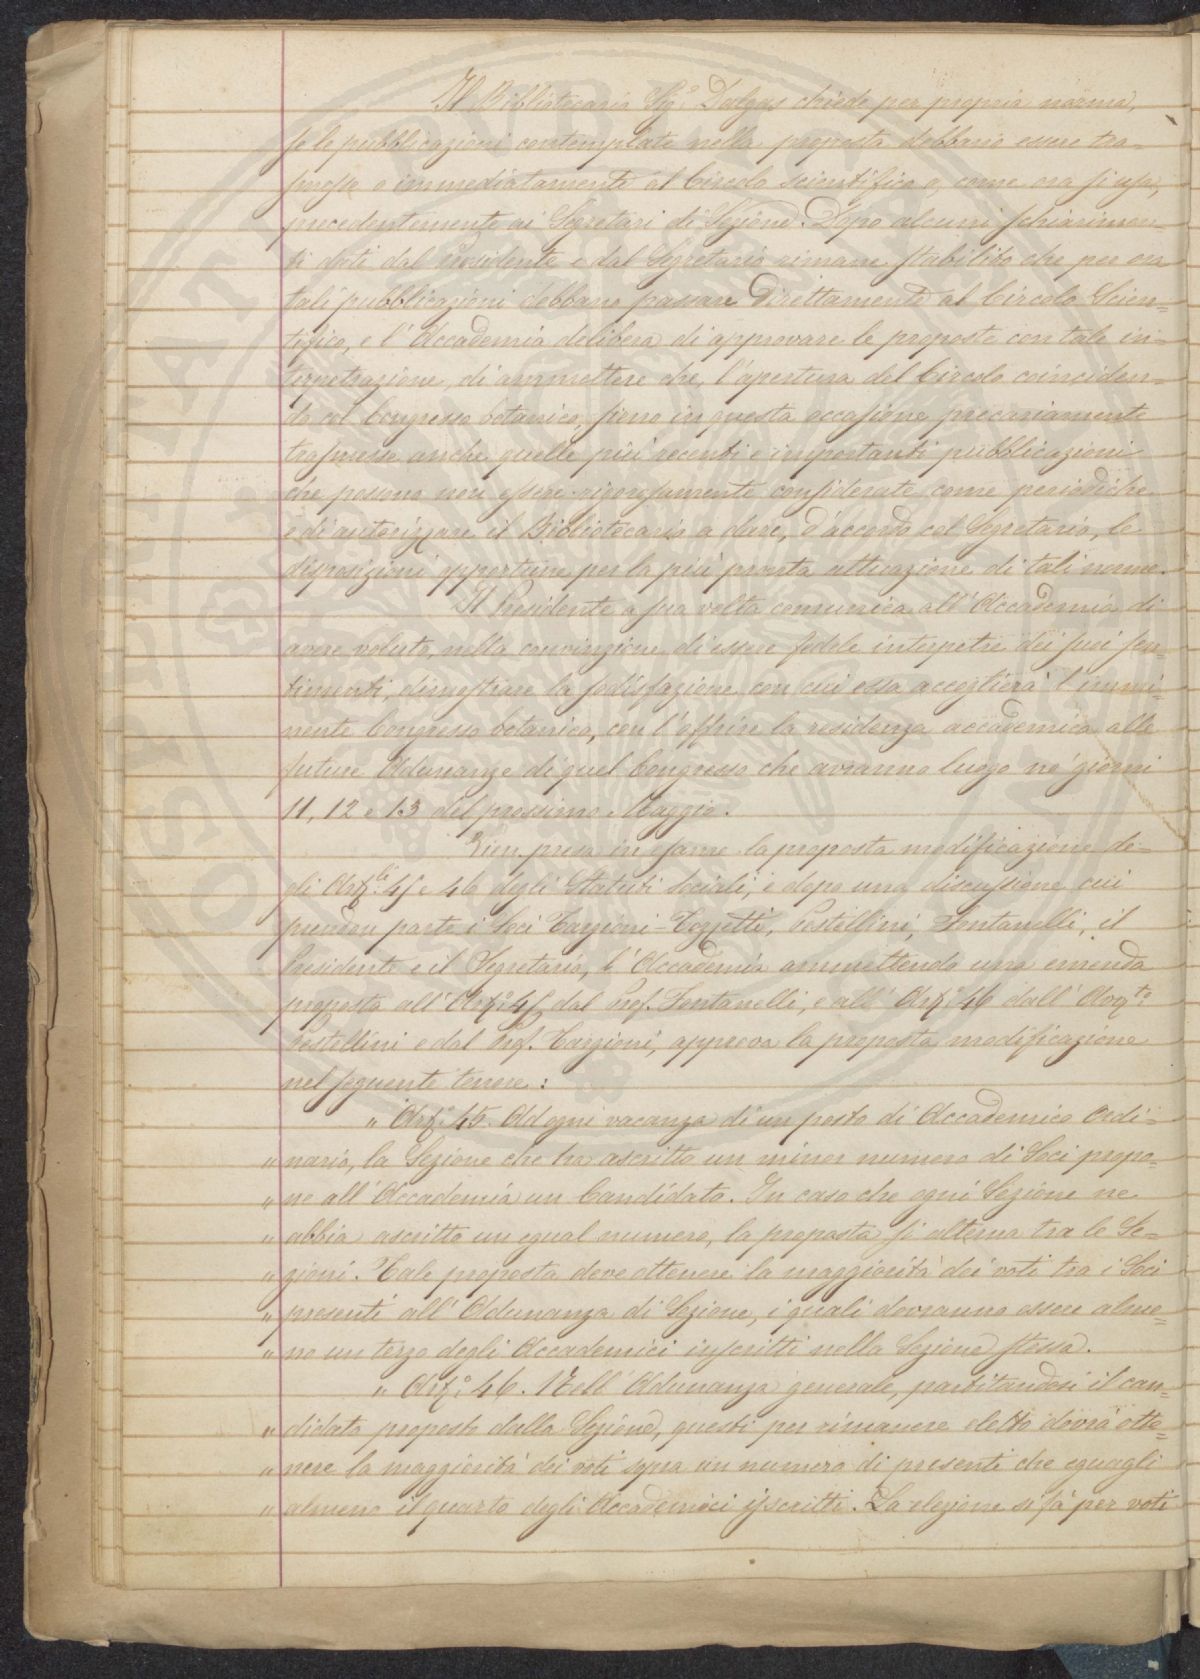 Il Bibliotecario Sig.r Dalgas chiede per propria norma,
se le pubblicazioni contemplate nella proposta debbano essere tra-
smesse o immediatamente al Circolo scientifico o, come ora si usa,
precedentemente ai Segretari di Sezione. Dopo alcuni schiarimen-
ti dati dal Presidente e dal Segretario rimane stabilito che per ora
tali pubblicazioni debbano passare direttamente al Circolo Scien-
tifico, e l'Accademia delibera di approvare le proposte con tale in-
terpetrazione, di ammettere che, l'apertura del Circolo coinciden-
do col Congresso botanico, siano in questa occasione precariamente
trasmesse anche quelle più recenti e importanti pubblicazioni
che possono non essere rigorosamente considerate come periodiche
e di autorizzare il Bibliotecario a dare, d'accordo col Segretario, le
disposizioni opportune per la più pronta attuazione di tali norme.
Il Presidente a sua volta comunica all'Accademia di
avere voluto, nella convinzione di essere fedele interpetre dei suoi sen-
timenti, dimostrare la sodisfazione con cui essa accoglierà l'immi-
nente Congresso botanico, con l'offrire la residenza accademica alle
future Adunanze di quel Congresso che avranno luogo ne' giorni
11, 12 e 13 del prossimo Maggio.
Vien presa in esame la proposta modificazione de-
gli Art.li 45 e 46 degli Statuti Sociali, e dopo una discussione cui
prendon parte i Soci Targioni-Tozzetti, Pestellini, Fontanelli, il
Presidente e il Segretario, l'Accademia ammettendo una emenda
proposta all'Art.o 45 dal Prof. Fontanelli, e all'Art.o 46 dall'Avv.to
Pestellini e dal Prof. Targioni, approva la proposta modificazione
nel seguente tenore:
" Art.o 45. Ad ogni vacanza di un posto di Accademico Ordi-
" nario, la Sezione che ha ascritto un minor numero di Soci propo-
" ne all'Accademia un Candidato. In caso che ogni Sezione ne
" abbia ascritto un egual numero, la proposta si alterna tra le Se-
" zioni. Tale proposta deve ottenere la maggiorità dei voti tra i Soci
" presenti all'Adunanza di Sezione, i quali dovranno essere alme-
" no un terzo degli Accademici inscritti nella Sezione stessa.
" Art.o 46. Nell'Adunanza generale, partitandosi il can-
" didato proposto dalla Sezione, questi per rimanere eletto dovrà otte-
" nere la maggiorità dei voti sopra un numero di presenti che eguagli
" almeno il quarto degli Accademici iscritti. La elezione si fa per voti